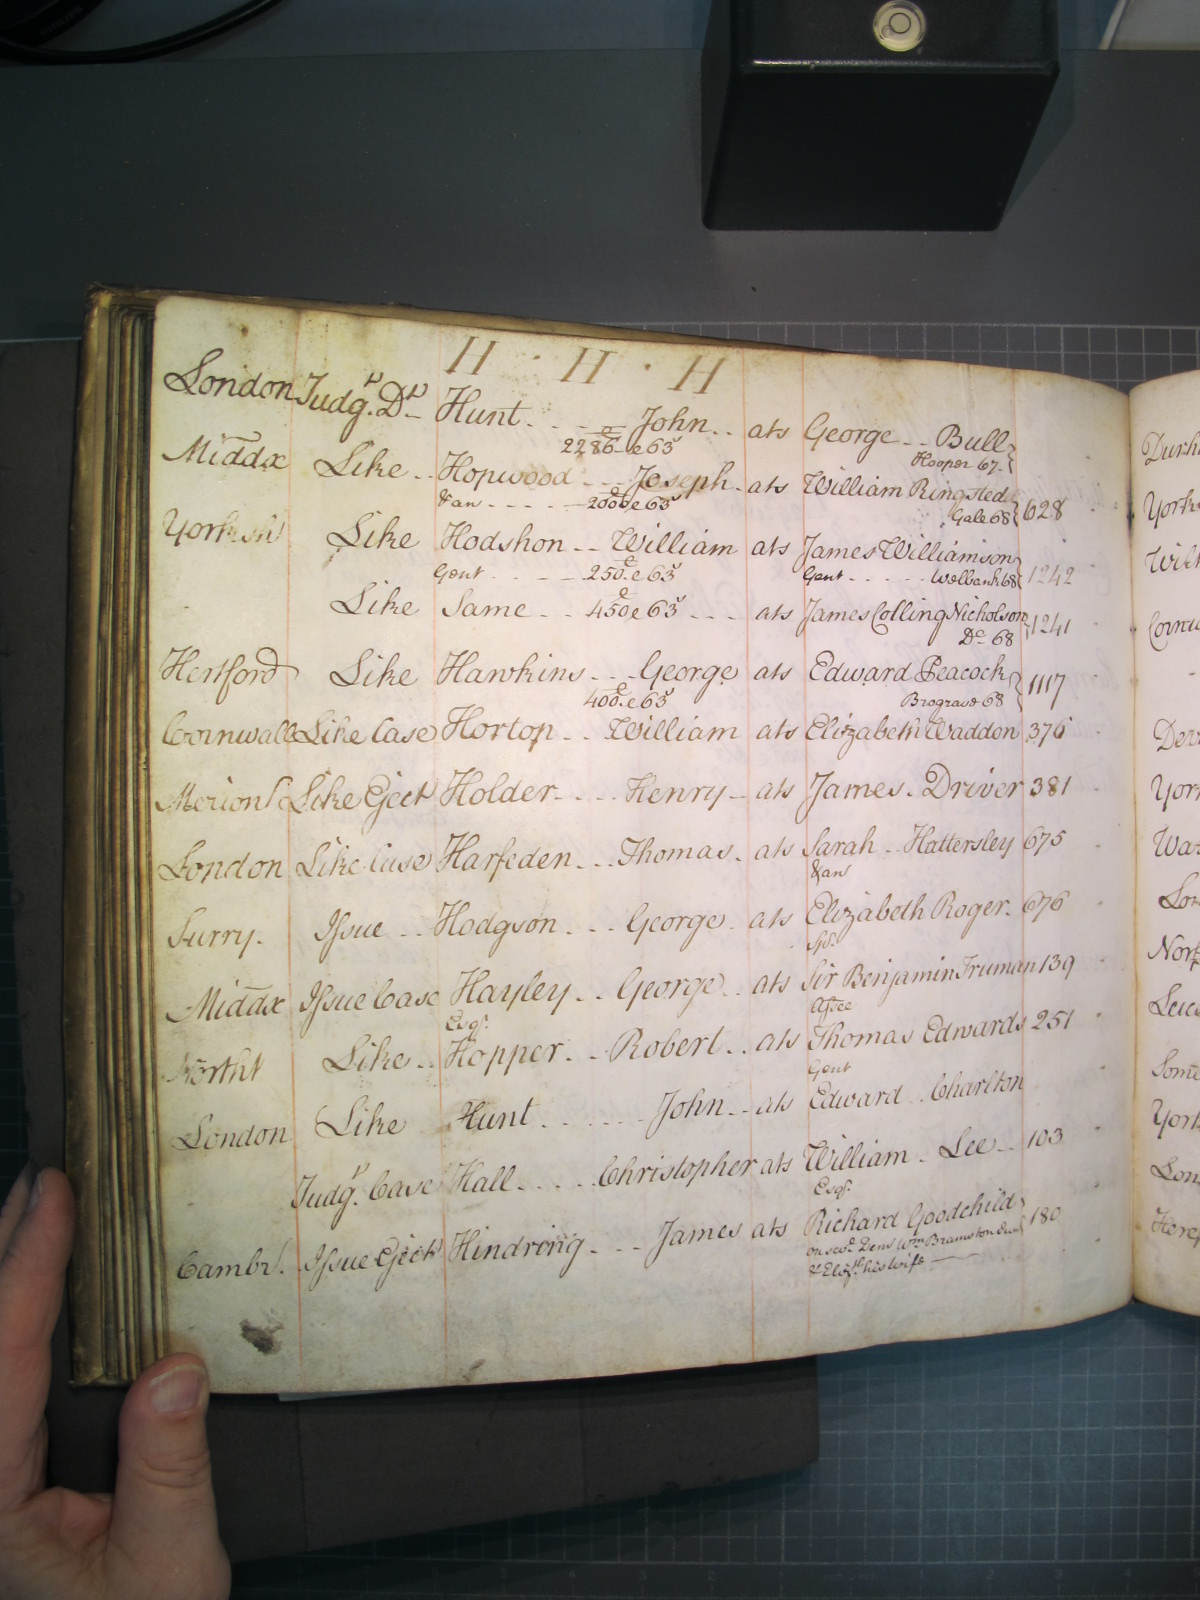 H · H · H
London Judgt. Dt. Hunt John ats George Bull
2286 e 63s Hooper 67
Middx Like Hopwood Joseph ats William Ringsted 628
& an 200 e 63s Gale 68
Yorksh Like Hodshon William ats James Williamson 1242
Gent 250 e 63s Gent Welbank 68
Like Same 450 e 63s ats James Colling Nicholson 1241
Do 68
Hertford Like Hawkins George ats Edward Peacock 1117
400 e 63s Brograve 68
Cornwall Like Case Horton William ats Elizabeth Waddon 376
Merions Like Eject Holder Henry ats James Driver 381
London Like Case Harfeden Thomas ats Sarah Hattersley 675
& an
Surry Issue Hodgson George ats Elizabeth Roger 676
Spr.
Middx Issue Case Hayley George ats Sir Benjamin Truman 139
Esqr. Assee
Northt Like Hopper Robert ats Thomas Edwards 251
Gent
London Like Hunt John ats Edward Charlton
Judgt. Case Hall Christopher ats William Lee 103
Esqr.
Cambr. Issue Eject Hindrong James ats Richard Goodchild 180
on sevl. Dems Wm Bramston
& Elizth. his wife
Durh
York
Wilt
Corn
Dev
York
War
Lon
Norf
Leic
Some
York
Lon
Heref